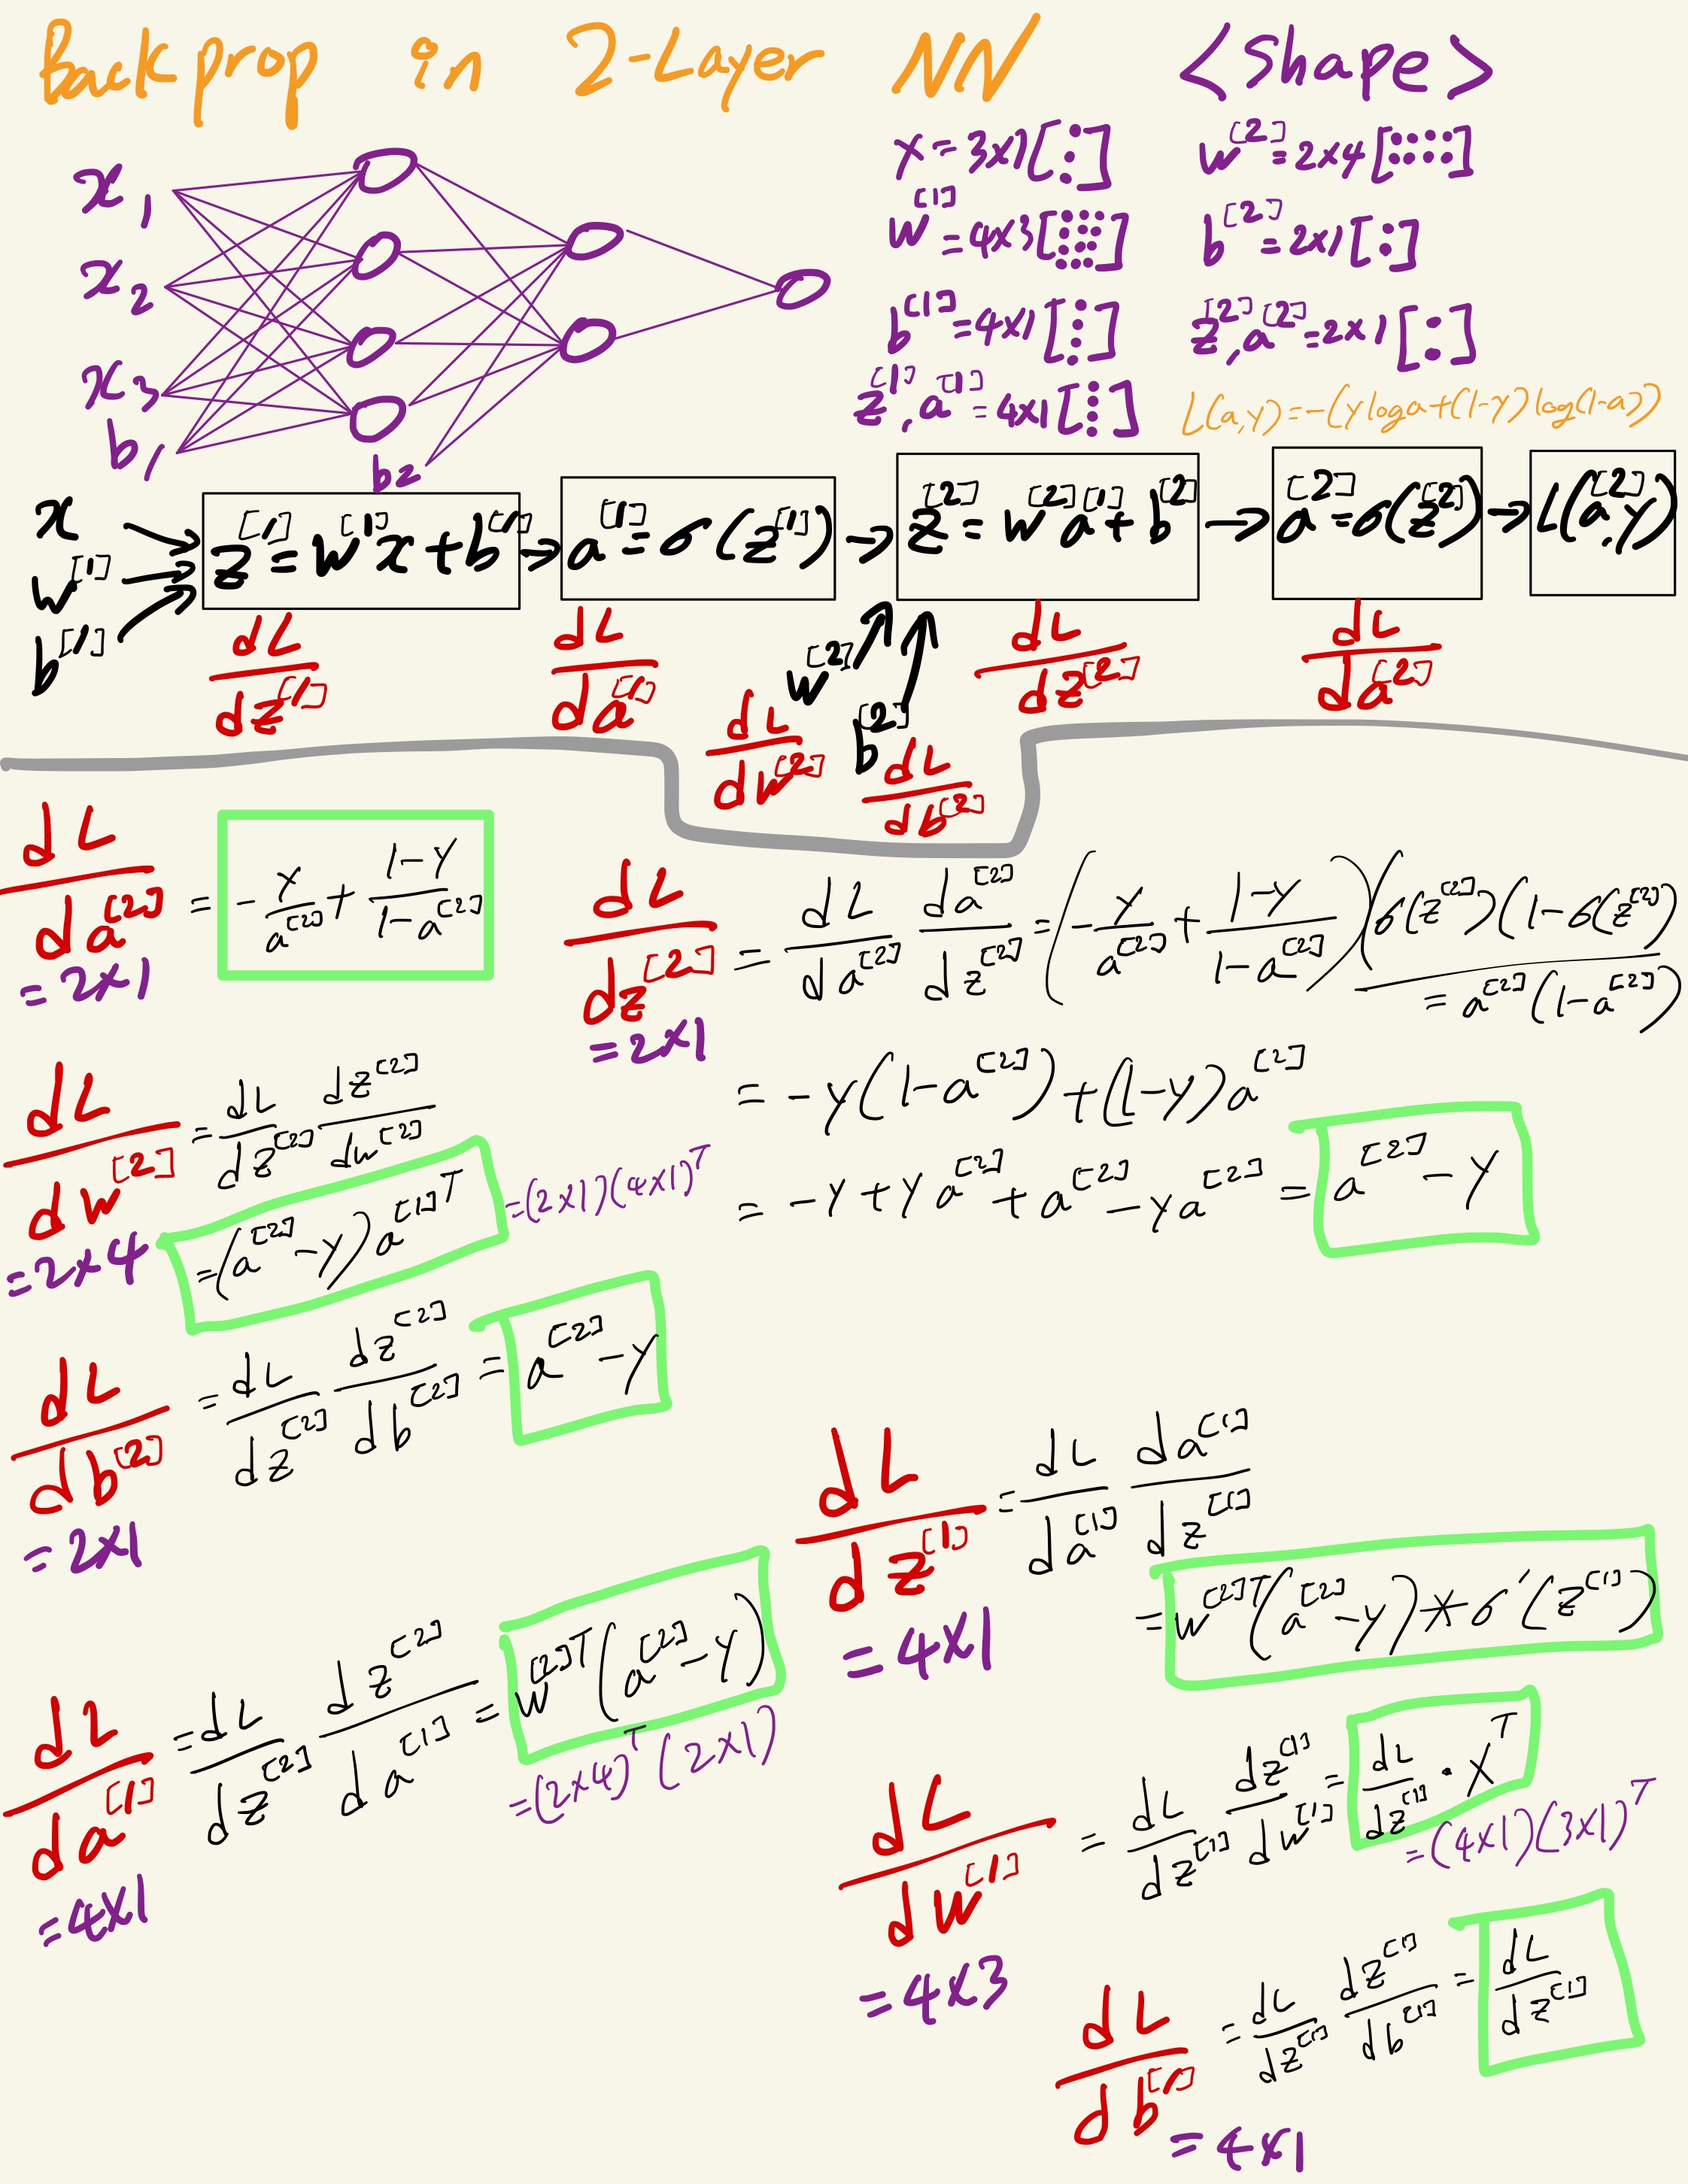 Backprop in 2-Layer NN <Shape>
x₁
x₂
x₃
b₁
b₂
x = 3x1 [ ]
w^[1] = 4x3 [ ]
b^[1] = 4x1 [ ]
z^[1], a^[1] = 4x1 [ ]
w^[2] = 2x4 [ ]
b^[2] = 2x1 [ ]
z^[2], a^[2] = 2x1 [ ]
L(a,y) = -(y log a + (1-y) log(1-a))
x
w^[1]
b^[1]
z^[1] = w^[1]x + b^[1] → a^[1] = σ(z^[1]) → z^[2] = w^[2]a^[1] + b^[2] → a^[2] = σ(z^[2]) → L(a^[2], y)
w^[2]
b^[2]
dL/dz^[1] dL/da^[1] dL/dz^[2] dL/da^[2]
dL/dw^[2] dL/db^[2]
dL/da^[2] = -y/a^[2] + (1-y)/(1-a^[2])
= 2x1
dL/dz^[2] = dL/da^[2] da^[2]/dz^[2] = (-y/a^[2] + (1-y)/(1-a^[2]))(σ(z^[2])(1-σ(z^[2]))
= a^[2](1-a^[2])
= 2x1
= -y(1-a^[2]) + (1-y)a^[2]
= -y + ya^[2] + a^[2] - ya^[2] = a^[2] - y
dL/dw^[2] = dL/dz^[2] dz^[2]/dw^[2]
= (a^[2] - y)a^[1]T = (2x1)(4x1)^T
= 2x4
dL/db^[2] = dL/dz^[2] dz^[2]/db^[2] = a^[2] - y
= 2x1
dL/da^[1] = dL/dz^[2] dz^[2]/da^[1] = w^[2]T(a^[2] - y)
= (2x4)^T(2x1)
= 4x1
dL/dz^[1] = dL/da^[1] da^[1]/dz^[1]
= w^[2]T(a^[2] - y) * σ'(z^[1])
= 4x1
dL/dw^[1] = dL/dz^[1] dz^[1]/dw^[1] = dL/dz^[1] · x^T
= (4x1)(3x1)^T
= 4x3
dL/db^[1] = dL/dz^[1] dz^[1]/db^[1] = dL/dz^[1]
= 4x1